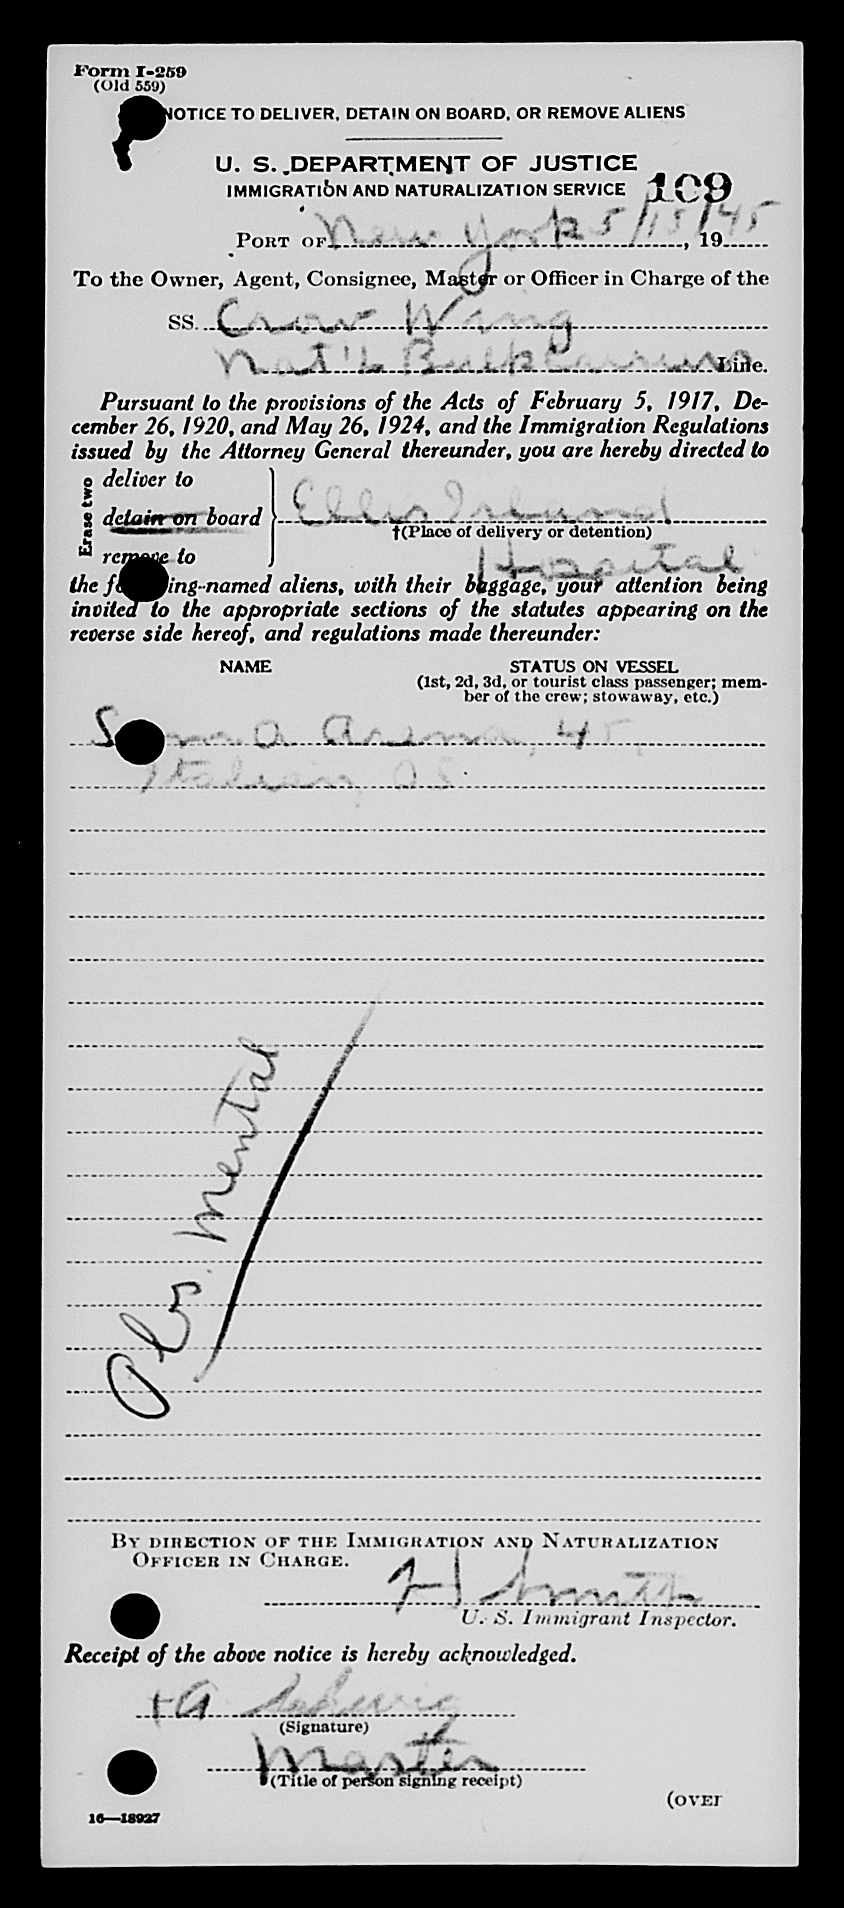 Form I-259
(Old 559)
NOTICE TO DELIVER, DETAIN ON BOARD, OR REMOVE ALIENS
U. S. DEPARTMENT OF JUSTICE
IMMIGRATION AND NATURALIZATION SERVICE 109
PORT OF New York 5/15/45, 19
To the Owner, Agent, Consignee, Master or Officer in Charge of the
SS. Crow Wing
Nat'l Bulk Carriers Line.
Pursuant to the provisions of the Acts of February 5, 1917, De-
cember 26, 1920, and May 26, 1924, and the Immigration Regulations
issued by the Attorney General thereunder, you are hereby directed to
Erase two
deliver to
detain on board Ellis Island
†(Place of delivery or detention)
remove to Hospital
the following-named aliens, with their baggage, your attention being
invited to the appropriate sections of the statutes appearing on the
reverse side hereof, and regulations made thereunder:
NAME STATUS ON VESSEL
(1st, 2d, 3d, or tourist class passenger; mem-
ber of the crew; stowaway, etc.)
Arena, 45,
Italian, OS.
Obs. Mental
BY DIRECTION OF THE IMMIGRATION AND NATURALIZATION
OFFICER IN CHARGE.
H Smith
U. S. Immigrant Inspector.
Receipt of the above notice is hereby acknowledged.
(Signature)
Master
(Title of person signing receipt)
16—18927
(OVER